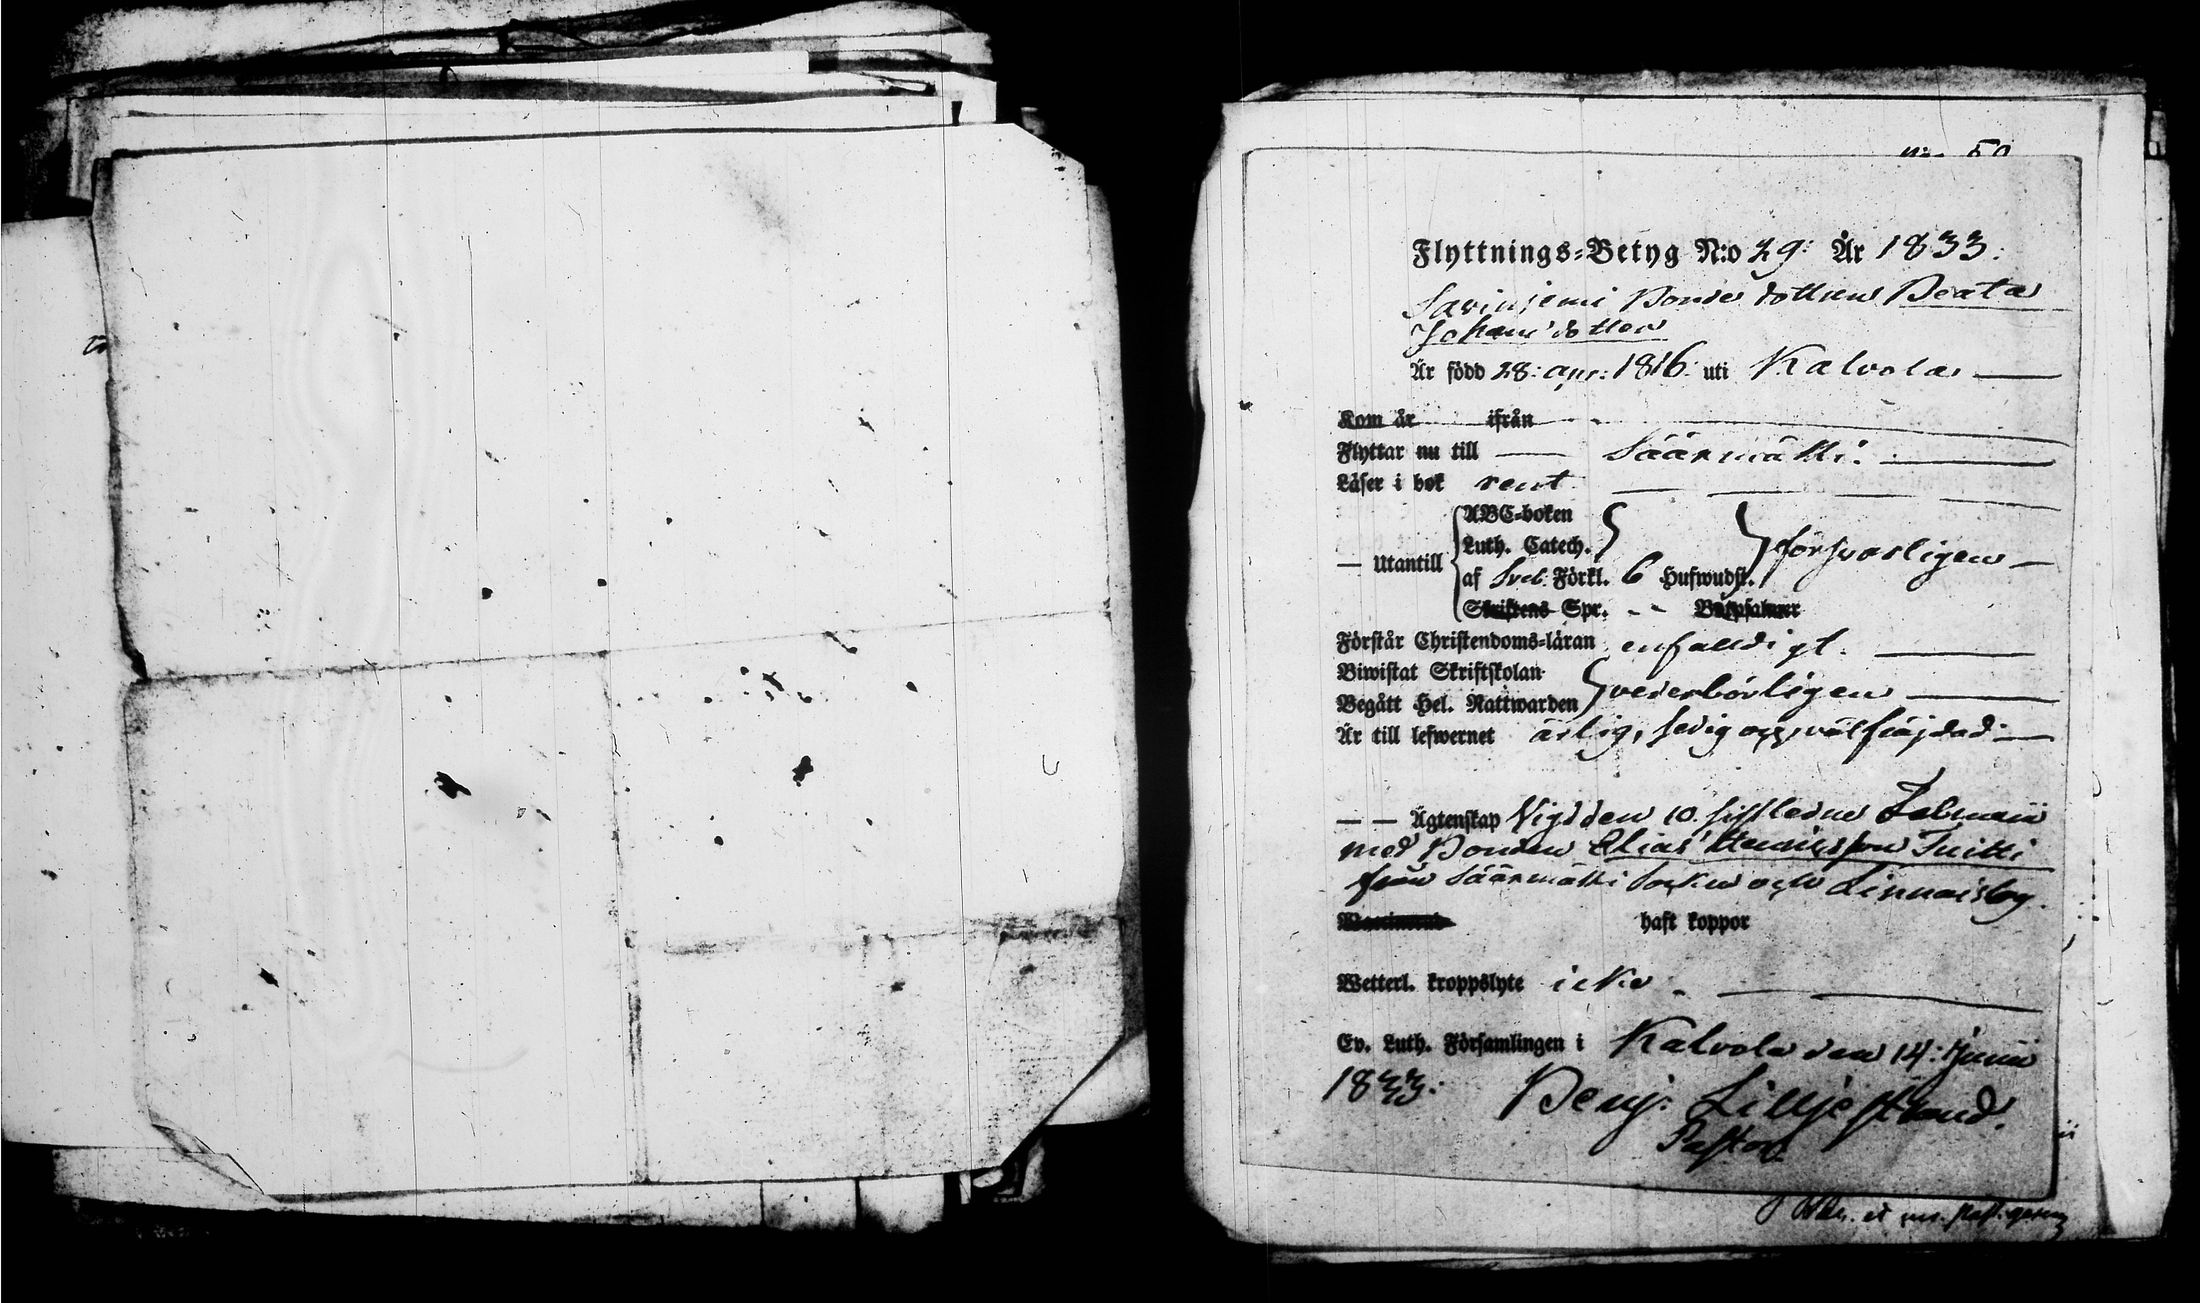 Flyttnings-Betyg N:o 29: År 1833.
Savinjemi Bonde dottren Beata
Johans dotter
Är född 28: apr: 1816: uti Kalvola
Kom år ifrån
Flyttar nu till Säärmäkki:
Läser i bok rent
ABC-boken
Luth. Catech.
— Utantill försvarligen —
af Sveb. Förkl. 6 Hufwudst.
Skriftens Spr. - - Botpsalmer
Förstår Christendoms-läran enfaldigt.
Biwistat Skriftskolan
Begått Hel. Nattwarden vederbörligen
Är till lefwernet ärlig, sedig och välfräjdad
— — Ägtenskap Vigd den 10. sistledne Februarii
med Bonden Elias Henricsson Tuitti
från Säärmäkki Socken och Linnais by.
haft koppor
Wetterl. kroppslyte icke.
Ev. Luth. Församlingen i Kalvola den 14: Junii
1833:
Benj: Lilljestrand.
Pastor.